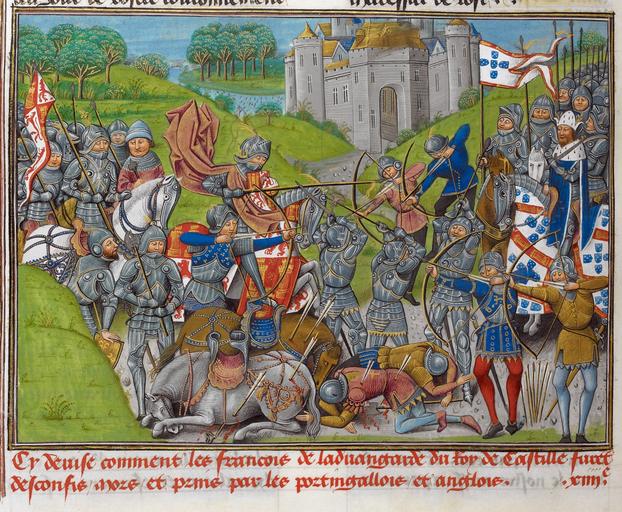 Cy deuise comment les francois de laduangarde du Roy de Castille furet
desconfis mors et prins par les portingallois et anglois. .xiiiᶜ.